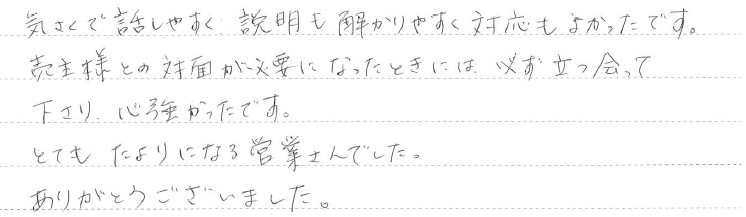 気さくで話しやすく、説明も解かりやすく対応もよかったです。
売主様との対面が必要になったときには、必ず立つ会って
下さり、心強かったです。
とても たよりになる営業さんでした。
ありがとうございました。